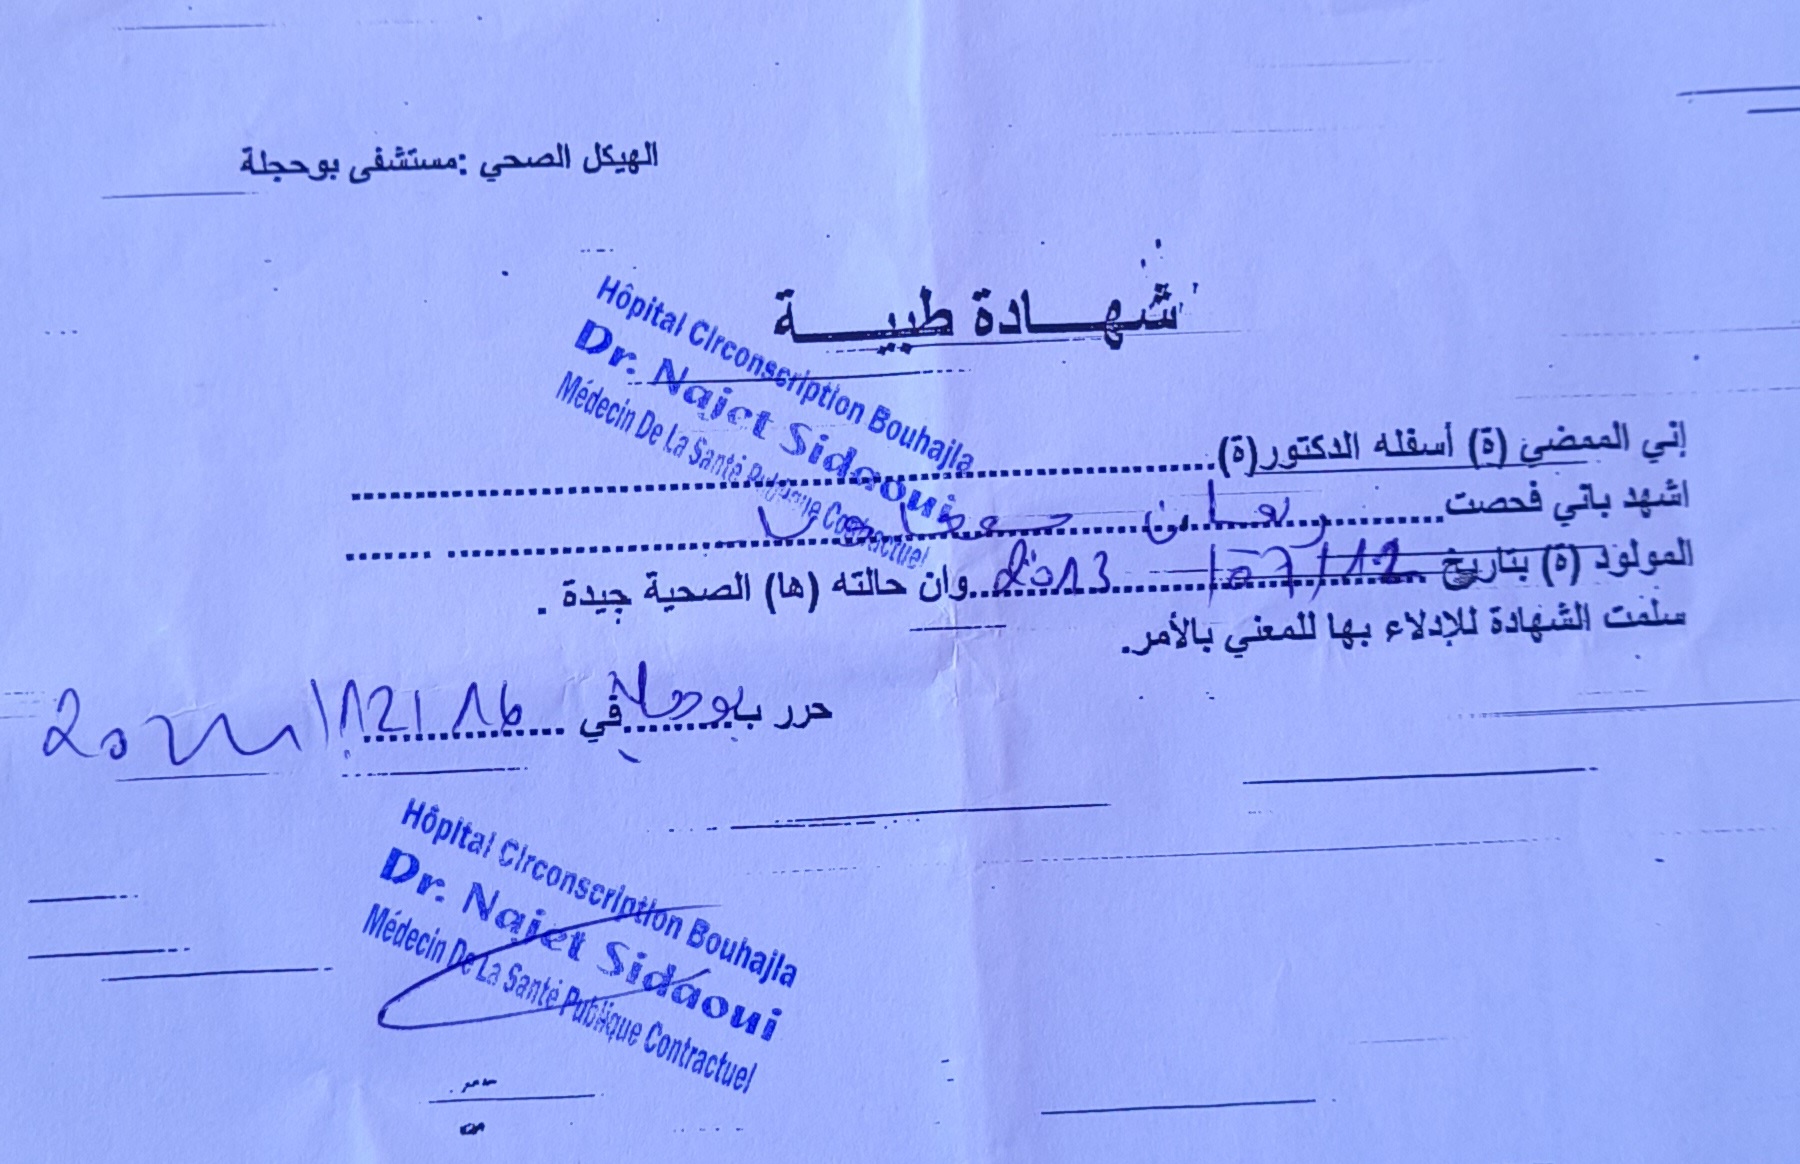 الهيكل الصحي :مستشفى بوحجلة
شهـــادة طبيـــــة
Hôpital Circonscription Bouhajla
Dr. Najet Sidaoui
Médecin De La Santé Publique Contractuel
إني الممضي (ة) أسفله الدكتور(ة)
اشهد باني فحصت
المولود (ة) بتاريخ 12/07/2013 وان حالته (ها) الصحية جيدة .
سلمت الشهادة للإدلاء بها للمعني بالأمر.
حرر ب بوحجلة في 16/12/
Hôpital Circonscription Bouhajla
Dr. Najet Sidaoui
Médecin De La Santé Publique Contractuel